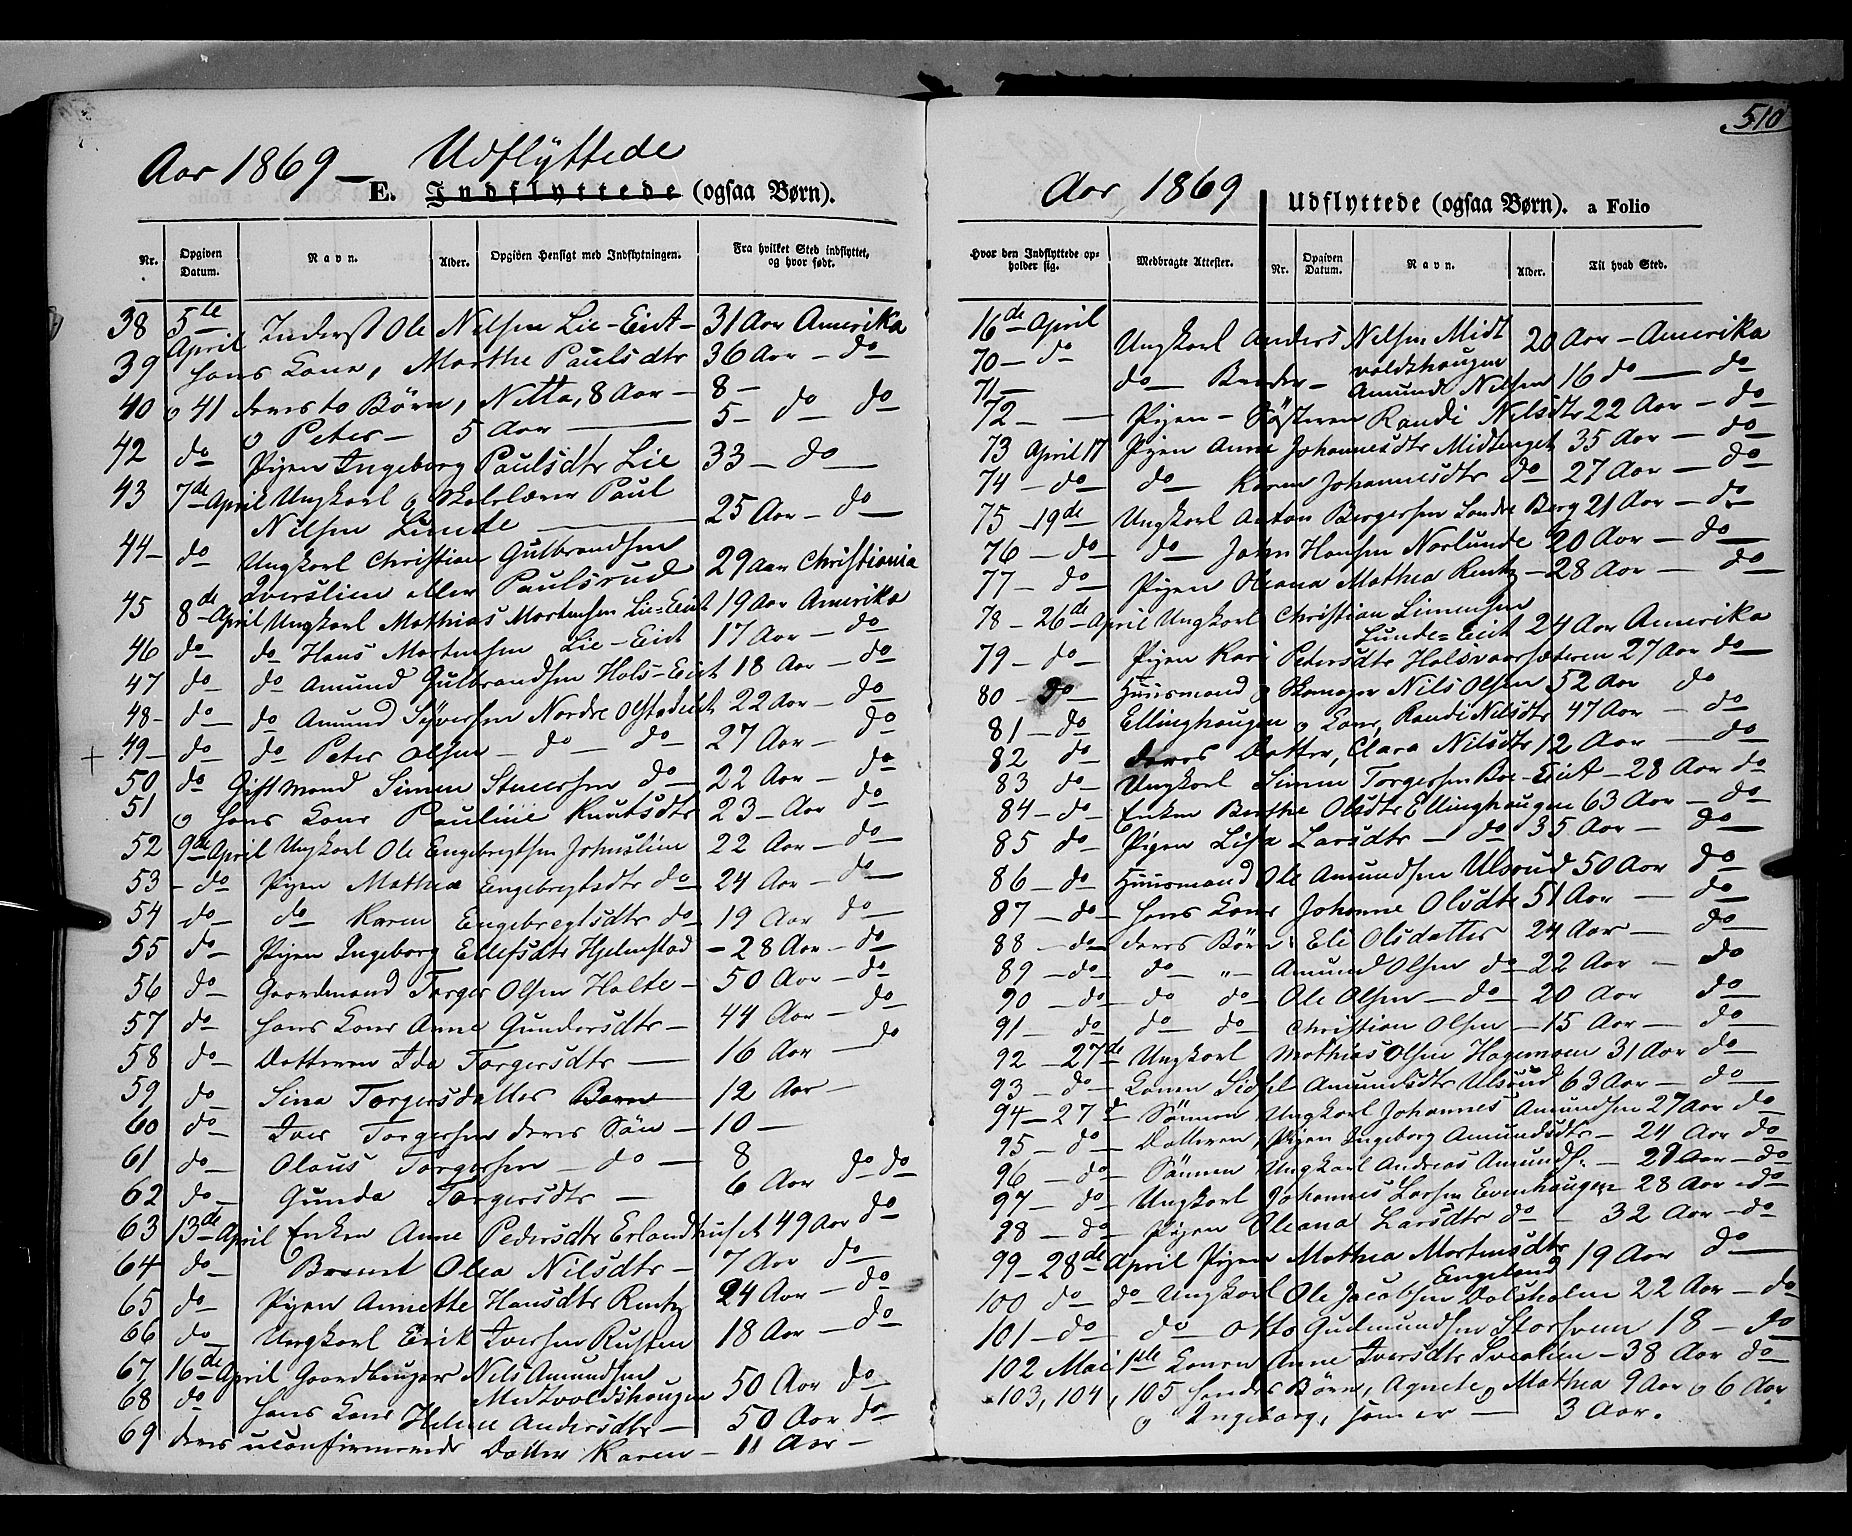 510
Aar 1869 — Udflÿttede
E. Indflyttede (ogsaa Børn).
Nr. Opgiven Datum. Navn. Alder. Opgiven Hensigt med Indflytningen. Fra hvilket Sted indflyttet, og hvor født.
38 5te April Inderst Ole Nilsen Lie-Eiet — 31 Aar Amerika
39 hans Kone, Marthe Paulsdtr 36 Aar — do
40 o 41 deres to Børn, Nitta, 8 Aar — 8 —
o Peter — 5 Aar — 5 — do do
42 do Pigen Ingeborg Paulsdtr Lie 33 — do
43 7de April Ungkarl o Skolelærer Paul
Nilsen Linde — 25 Aar — do
44 — do Ungkarl Christian Gulbrandsen
Iverslien eller Paulsrud 29 Aar Christiania
45 8de April Ungkarl Mathias Mortensen Lie-Eiet 19 Aar Amerika
46 do do Hans Mortensen Lie-Eiet 17 Aar — do
47 do do Amund Gulbrandsen Hols-Eiet 18 Aar — do
48 — do do Amund Syversen Nordre Olstadeiet 22 Aar — do
49 — do do Peter Olsen — do — do 27 Aar — do
50 do Gift Mand Simen Steuersen do 22 Aar — do
51 o hans Kone Pauline Knutsdtr 23 — Aar do
52 9de April Ungkarl Ole Engebregtsen Johnslien 22 Aar — do
53 — do Pigen Mathea Engebregtsdtr do 24 Aar — do
54 do do Karen Engebregtsdtr do 19 Aar do
55 do Pigen Ingeborg Ellefsdtr Hjelmstad — 28 Aar — do
56 do Gaardmand Torger Olsen Holte — 50 Aar — do
57 do hans Kone Anne Gundersdtr — 44 Aar — do
58 do Datteren Ida Torgersdtr — 16 Aar — do
59 do Sina Torgersdatter Barn 12 Aar —
60 do Iver Torgersen deres Søn — 10 —
61 do Olaus Torgersen — do — 8
62 do Gunda Torgersdtr — 6 Aar do do
63 13de April Enken Anne Pedersdtr Erlandhuset 49 Aar do
64 do Barnet Olea Nilsdtr — 7 Aar do
65 do Pigen Annette Hansdtr Rentz 24 Aar — do
66 do Ungkarl Erik Iversen Rusten 18 Aar — do
67 16de April Gaardbruger Nils Amundsen
Midtvoldshaugen 50 Aar do
68 do hans Kone Helene Andersdtr — 50 Aar do
69 deres uconfirmerede Datter Karen — 11 Aar —
Aar 1869
Udflyttede (ogsaa Børn). a Folio
Hvor den Indflyttede opholder sig. Medbragte Attester. Nr. Opgiven Datum. Navn. Alder. Til hvad Sted.
16de April
70 — do Ungkarl Anders Nilsen Midtvoldshaugen 20 Aar — Amerika
71 — do Broder — Amund Nilsen 16 do — do
72 — Pigen — Søsteren Randi Nilsdtr 22 Aar — do
73 April 17 Pigen Anne Johannesdtr Midtenget 35 Aar — do
74 — do do Karen Johannesdtr do 27 Aar — do
75 — 19de Ungkarl Anton Bergersen Søndre Berg 21 Aar — do
76 — do do John Hansen Norlunde 20 Aar — do
77 — do Pigen Oleana Mathea Rentz — 28 Aar — do
78 — 26de April Ungkarl Christian Simensen
Lunde-Eiet 24 Aar Amerika
79 — do Pigen Kari Petersdtr Holsvaarsæteren 27 Aar do
80 — do Huusmand o Skomager Nils Olsen 52 Aar do
81 — do Ellinghaugen o Kone, Randi Nilsdtr 47 Aar — do
82 do deres Datter, Clara Nilsdtr 12 Aar — do
83 do Ungkarl Simen Torgersen Boe-Eiet — 28 Aar do
84 — do Enken Berthe Olsdtr Ellinghaugen 63 Aar — do
85 do Pigen Lisa Larsdtr — do 35 Aar — do
86 — do Huusmand Ole Amundsen Ulsrud 50 Aar do
87 — do — hans Kone Johanne Olsdtr 51 Aar — do
88 — do deres Børn: Eli Olsdatter 24 Aar — do
89 — do do „ Amund Olsen do 22 Aar — do
90 — do do do Ole Olsen — do — 20 Aar do
91 — do do do Christian Olsen — 15 Aar — do
92 — 27de Ungkarl Mathias Olsen Hagemoen 31 Aar do
93 — do Konen Sidsel Amundsdtr Ulsrud 63 Aar — do
94 — 27d Sønnen Ungkarl Johannes Amundsen 27 Aar do
95 — do Datteren, Pigen Ingeborg Amundsdtr — 24 Aar do
96 — do Sønnen Ungkarl Andreas Amunds: — 21 Aar — do
97 — do Ungkarl Johannes Larsen Evenhaugen — 28 Aar — do
98 — do Pigen Oleana Larsdtr do — 32 Aar — do
99 — 28de April Pigen Mathea Mortensdtr
Engeland 19 Aar do
100 do do Ungkarl Ole Jacobsen Dalsholm 22 Aar — do
101 — do do Otto Gudmundsen Storsveen 18 — do
102 Mai 1ste Konen Anne Iversdtr Svealien — 38 Aar do
103, 104, 105 hendes Børn, Agnete o Mathea 9 Aar o 6 Aar
o Ingeborg, som er — 3 Aar.